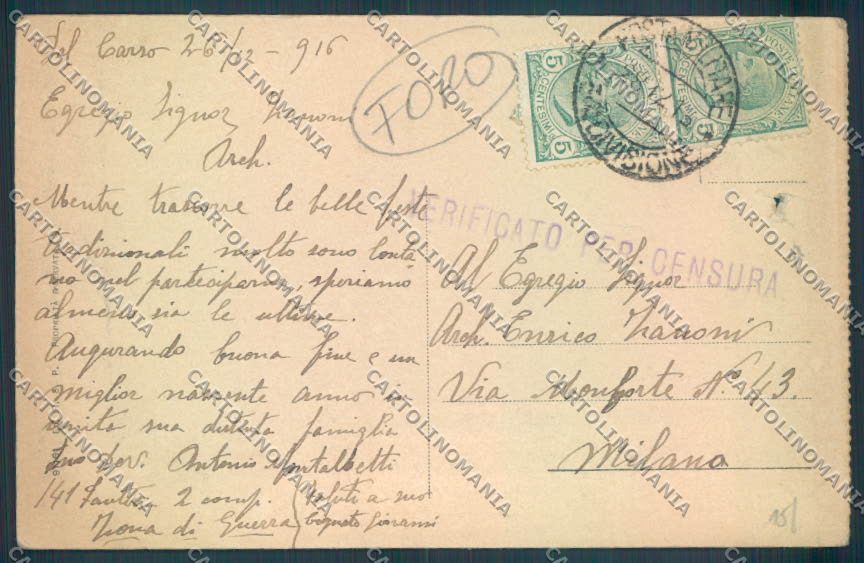 Dal Carso 26/12 - 916
Egregio Signor Zanoni
Arch.
Mentre trascorre le belle feste
tradizionali molto sono lonta
no nel participarvi, speriamo
almeno sia le ultime.
Augurando buona fine e un
miglior nascente anno in
unita sua distinta famiglia
suo dev. Antonio Montalbetti
141 Fantta 2 comp.
Zona di Guerra
Saluti a suo
cognato Giovanni
FORO
5 CENTESIMI 5
POSTE ITALIANE
POSTA MILITARE
DIVISIONE
VERIFICATO PER CENSURA
Al Egregio Signor
Arch. Enrico Zanoni
Via Monforte N.° 43.
Milano
15/
CARTOLINOMANIA